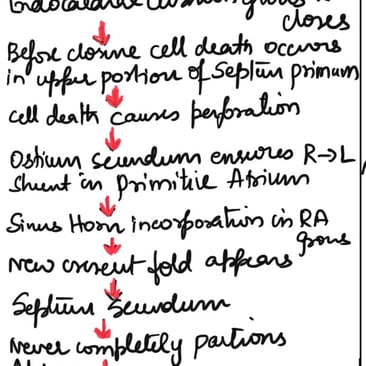 closes
Before closure cell death occurs
in upper portion of Septum primum
cell death causes perforation
Ostium secundum ensures R→L
Shunt in Primitie Atrium
Sinus Horn incorporation in RA
grows
New cresent fold appears
Septum Secundum
Never completely partions